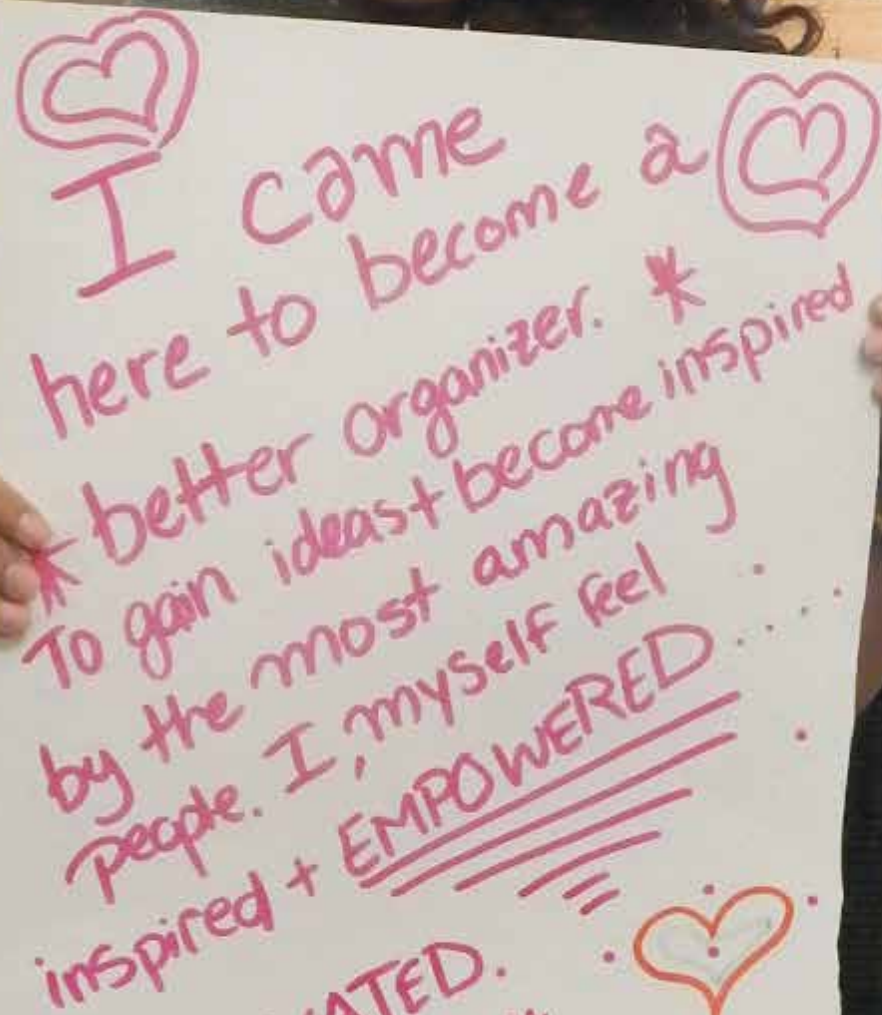 I came
here to become a
better organizer. *
* To gain ideas + become inspired
by the most amazing
people. I, myself feel
inspired + EMPOWERED.....